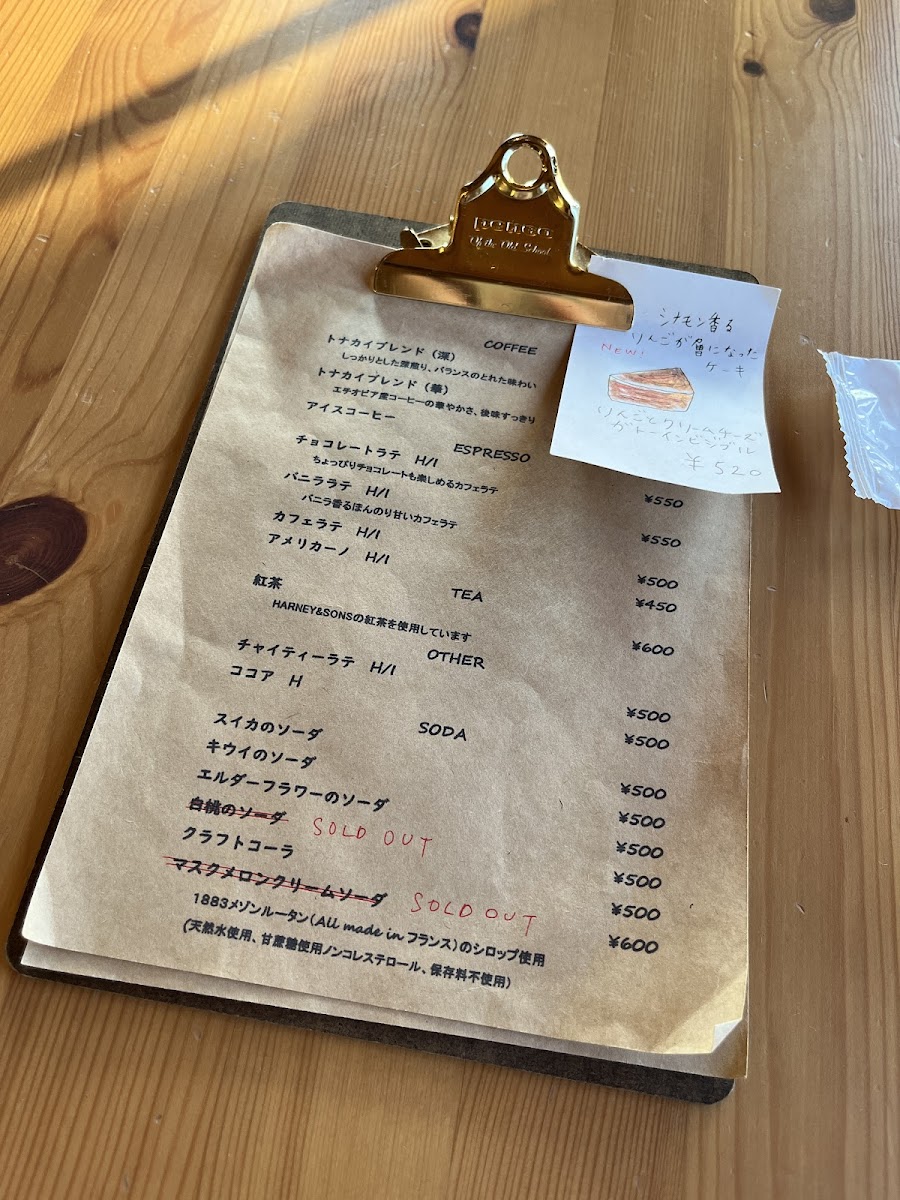 penco
Of the Old School
シナモン香る
りんごが層になった
NEW!
ケーキ
りんごとクリームチーズ
ガトーインビジブル
¥520
COFFEE
トナカイブレンド(深)
しっかりとした深煎り、バランスのとれた味わい
トナカイブレンド(華)
エチオピア産コーヒーの華やかさ、後味すっきり
アイスコーヒー
ESPRESSO
チョコレートラテ H/I ¥550
ちょっぴりチョコレートも楽しめるカフェラテ
バニララテ H/I ¥550
バニラ香るほんのり甘いカフェラテ
カフェラテ H/I ¥500
アメリカーノ H/I ¥450
TEA
紅茶 ¥600
HARNEY&SONSの紅茶を使用しています
OTHER
チャイティーラテ H/I ¥500
ココア H ¥500
SODA
スイカのソーダ ¥500
キウイのソーダ ¥500
エルダーフラワーのソーダ ¥500
白桃のソーダ SOLD OUT ¥500
クラフトコーラ ¥500
マスクメロンクリームソーダ SOLD OUT ¥600
1883メゾンルータン(All made in フランス)のシロップ使用
(天然水使用、甘蔗糖使用ノンコレステロール、保存料不使用)